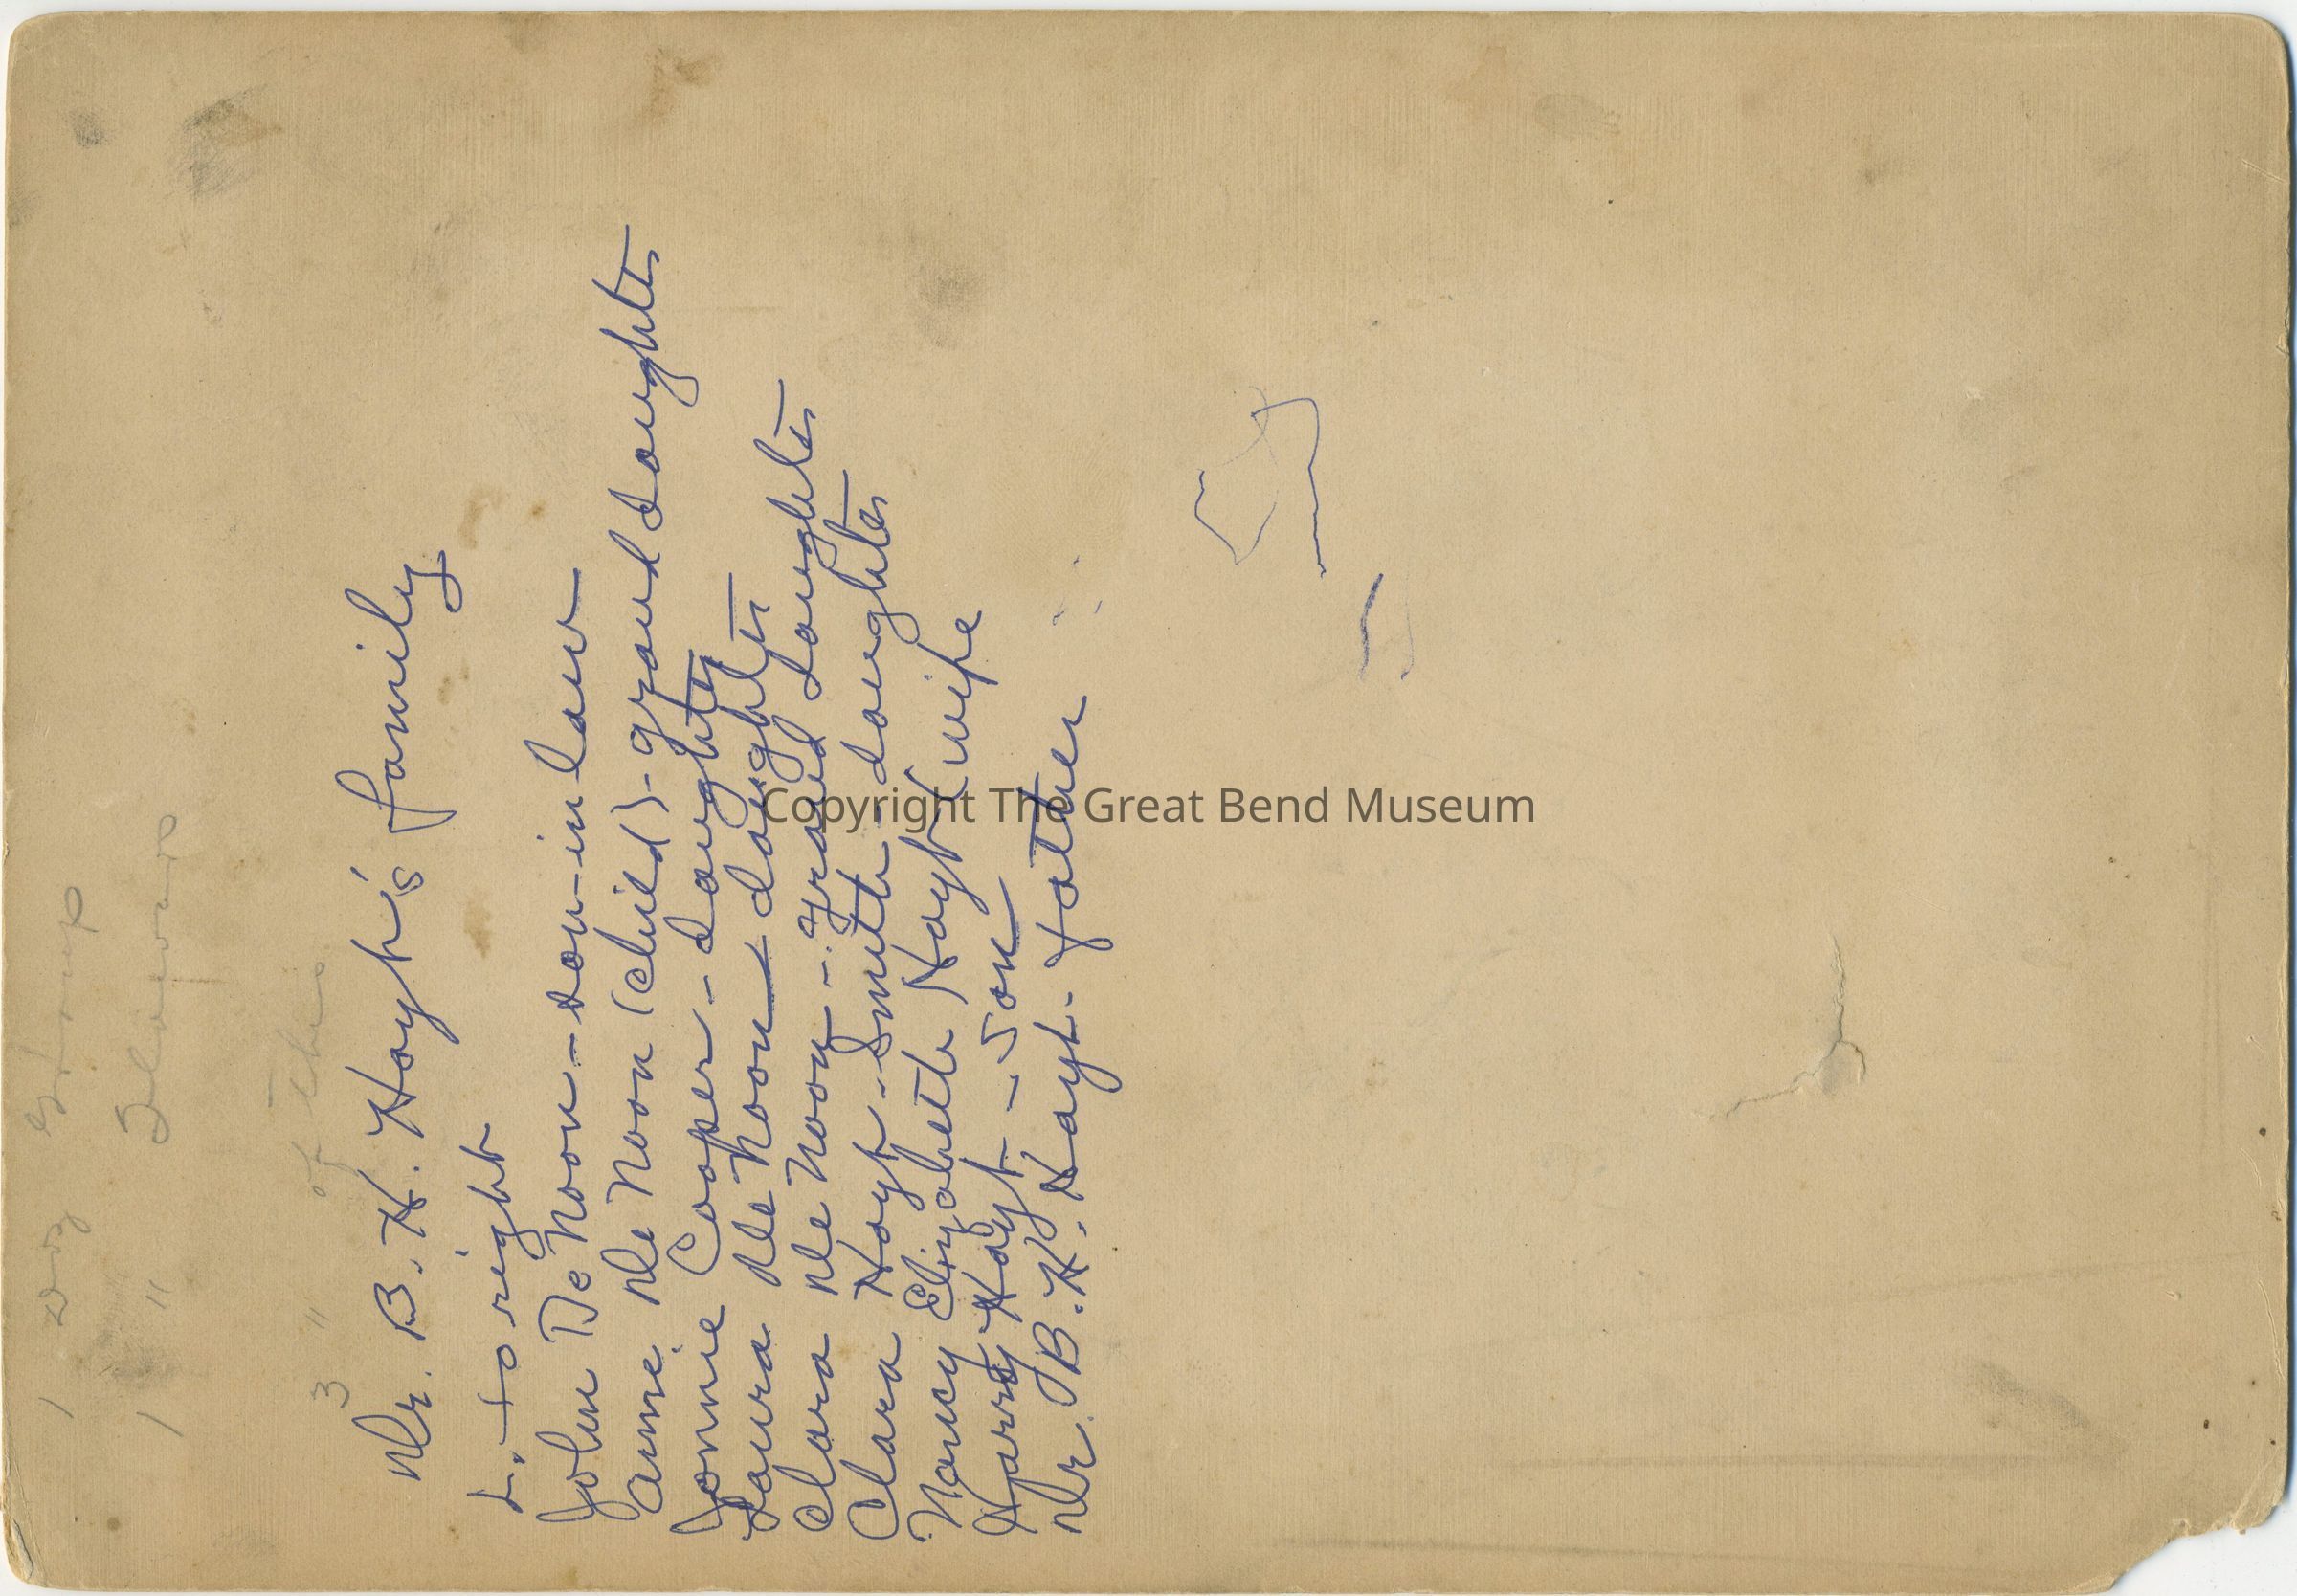 1 doz Group
1 " Flowers
3 " of the
Dr. B. H. Hoyt's family
L. to right
John DeNoon - son-in law
Anne DeNoon (child) - grand daughter
Jonnie Cooper - daughter
Laura DeNoon - daughter
Clara DeNoon - grand daughter
Clara Hoyt - Smith - daughter
Nancy Elizabeth Hoyt (wife
Harry Hoyt - Son
Dr. B. H. Hoyt - father
Copyright The Great Bend Museum